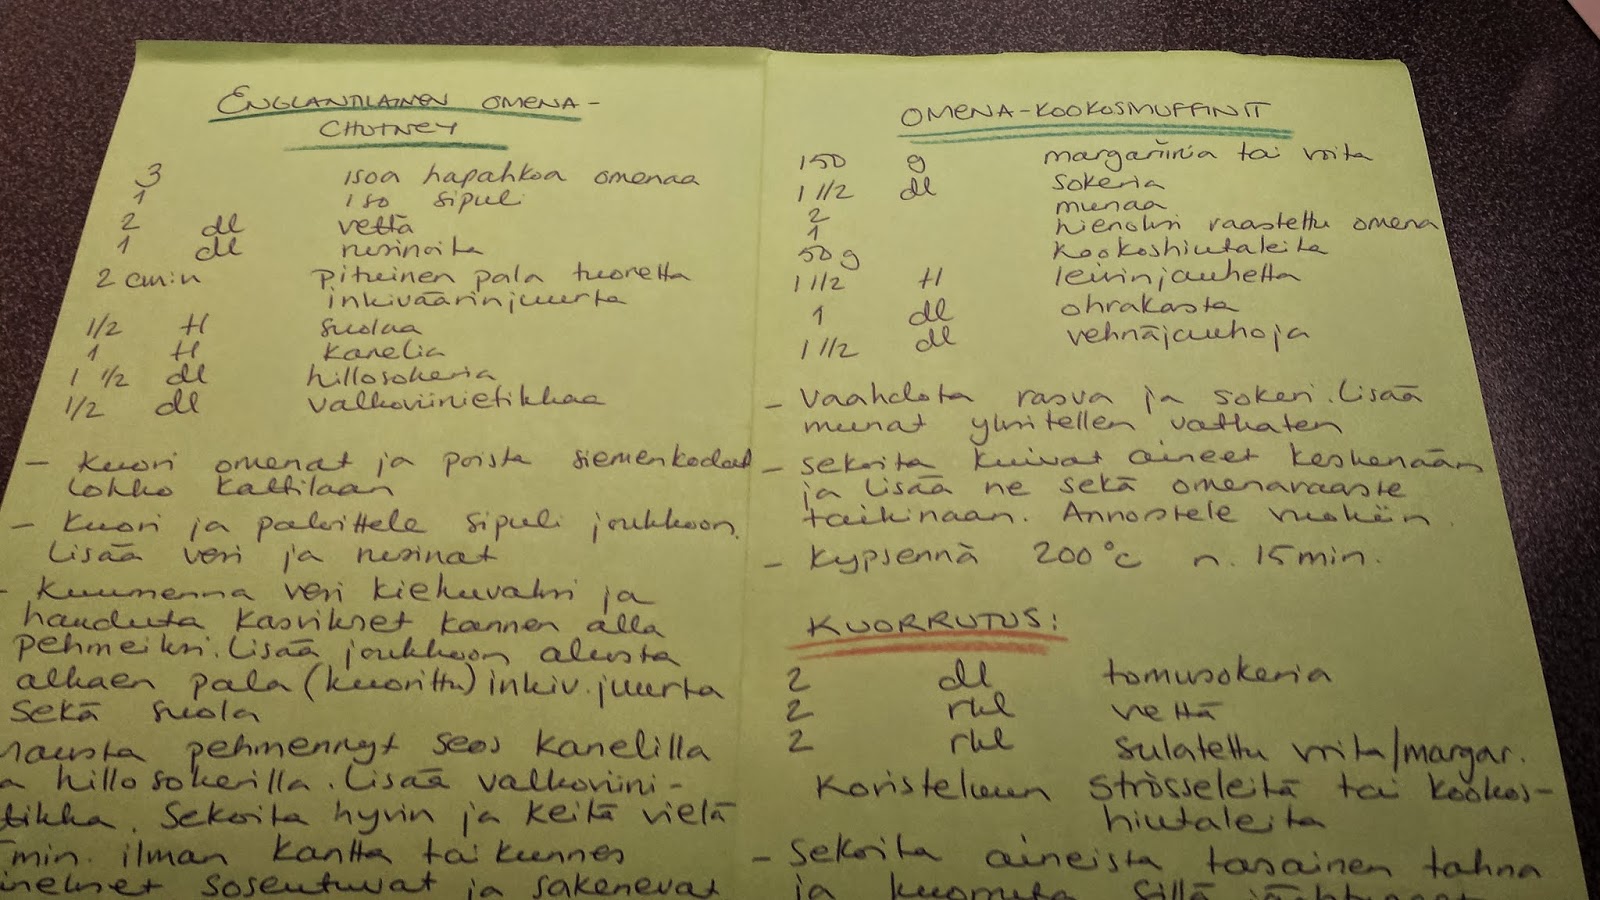 ENGLANTILAINEN OMENA-
CHUTNEY
3 isoa hapahkoa omenaa
1 iso sipuli
2 dl vettä
1 dl rusinoita
2 cm:n pituinen pala tuoretta
inkiväärinjuurta
1/2 tl suolaa
1 tl kanelia
1 1/2 dl hillosokeria
1/2 dl valkoviinietikkaa
- Kuori omenat ja poista siemenkodat
Lohko kattilaan
- Kuori ja paloittele sipuli joukkoon.
Lisää vesi ja rusinat
- Kuumenna vesi kiehuvaksi ja
hauduta kasvikset kannen alla
pehmeiksi. Lisää joukkoon alusta
alkaen pala (kuorittu) inkiv.juurta
sekä suola
mausta pehmennyt seos kanelilla
a hillosokerilla. Lisää valkoviini-
tikka. Sekoita hyvin ja keitä vielä
min. ilman kantta tai kunnes
sosentuvat ja sakenevat
OMENA-KOOKOSMUFFINIT
150 g margariinia tai voita
1 1/2 dl sokeria
2 munaa
1 hienoksi raastettu omena
50 g kookoshiutaleita
1 1/2 tl leivinjauhetta
1 dl ohrakasta
1 1/2 dl vehnäjauhoja
- Vaahdota rasva ja sokeri. Lisää
munat yksitellen vatkaten
- Sekoita kuivat aineet keskenään
ja lisää ne sekä omenaraaste
taikinaan. Annostele vuokiin.
- Kypsennä 200°C n. 15 min.
KUORRUTUS:
2 dl tomusokeria
2 rkl vettä
2 rkl sulatettu voita/margar.
Koristeluun strösseleitä tai kookos-
hiutaleita
- Sekoita aineista tasainen tahna
ja kuorruta sillä